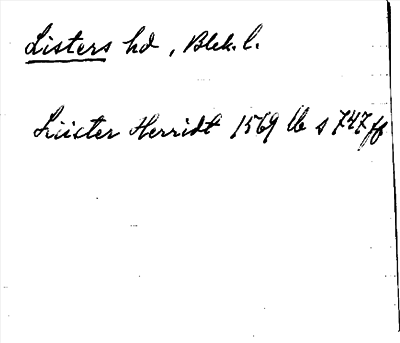 Listers hd, Blek. l.
Lüister Herridt 1569 lb s 747 ff